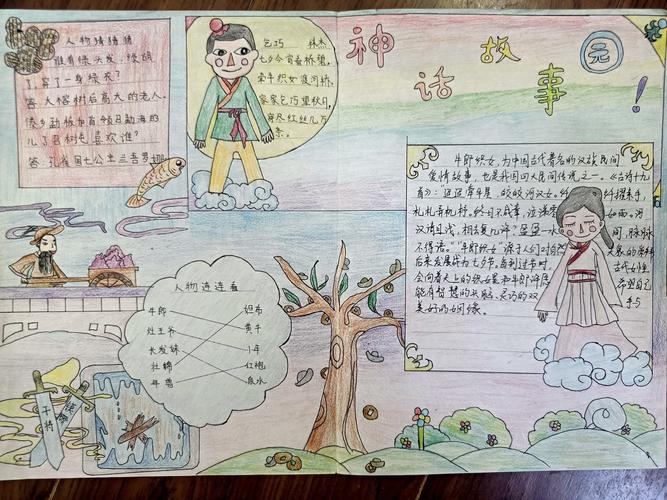 神话故事园!
人物猜猜猜
谁有绿头发,绿胡
了,穿了一身绿衣?
答:大榕树后高大的老人。
傣乡勐板加首领召勐海的
儿子召树屯喜欢谁?
答:孔雀国七公主
乞巧 林杰
七夕今宵看碧霄,
牵牛织女渡河桥。
家家乞巧望秋月,
穿尽红丝几万
条。
牛郎织女,为中国古代著名的汉族民间
爱情故事,也是我国四大民间传说之一。《古诗十九
首》:迢迢牵牛星 皎皎河汉女。纤纤擢素手,
札札弄机杼。终日不成章,泣涕零如雨。河
汉清且浅,相去复几许?盈盈一水间,脉脉
不得语。"牛郎织女"源于人们对自然
后来发展成为七夕节。每到过节时,古代
会向着天上的织女星和牛郎
能有智慧的 灵巧的双手与
美好的姻缘。
人物连连看
牛郎 织布
灶王爷 黄牛
长发妹 1年
牡蛎 红袍
年兽 泉水
干将